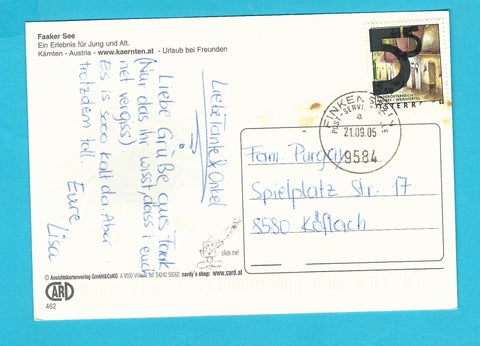 Faaker See
Ein Erlebnis für Jung und Alt.
Kärnten - Austria - www.kaernten.at - Urlaub bei Freunden
Liebe Tante & Onkel
Liebe Grüße aus Fink
(Nur das ihr wisst, dass i euch
net vergiss)
Es is sooo kalt da Aber
trotzdem toll.
Eure
Lisa
55
FINKEN
POST.-SERVI
a
21.09.05
9584
Fam. Purgay
Spielplatz Str. 17
8580 Köflach
click me!
© Ansichtskartenverlag GmbH&CoKG A 9500 Tel. 04242 cardy's shop: www.card.at
CARD
462